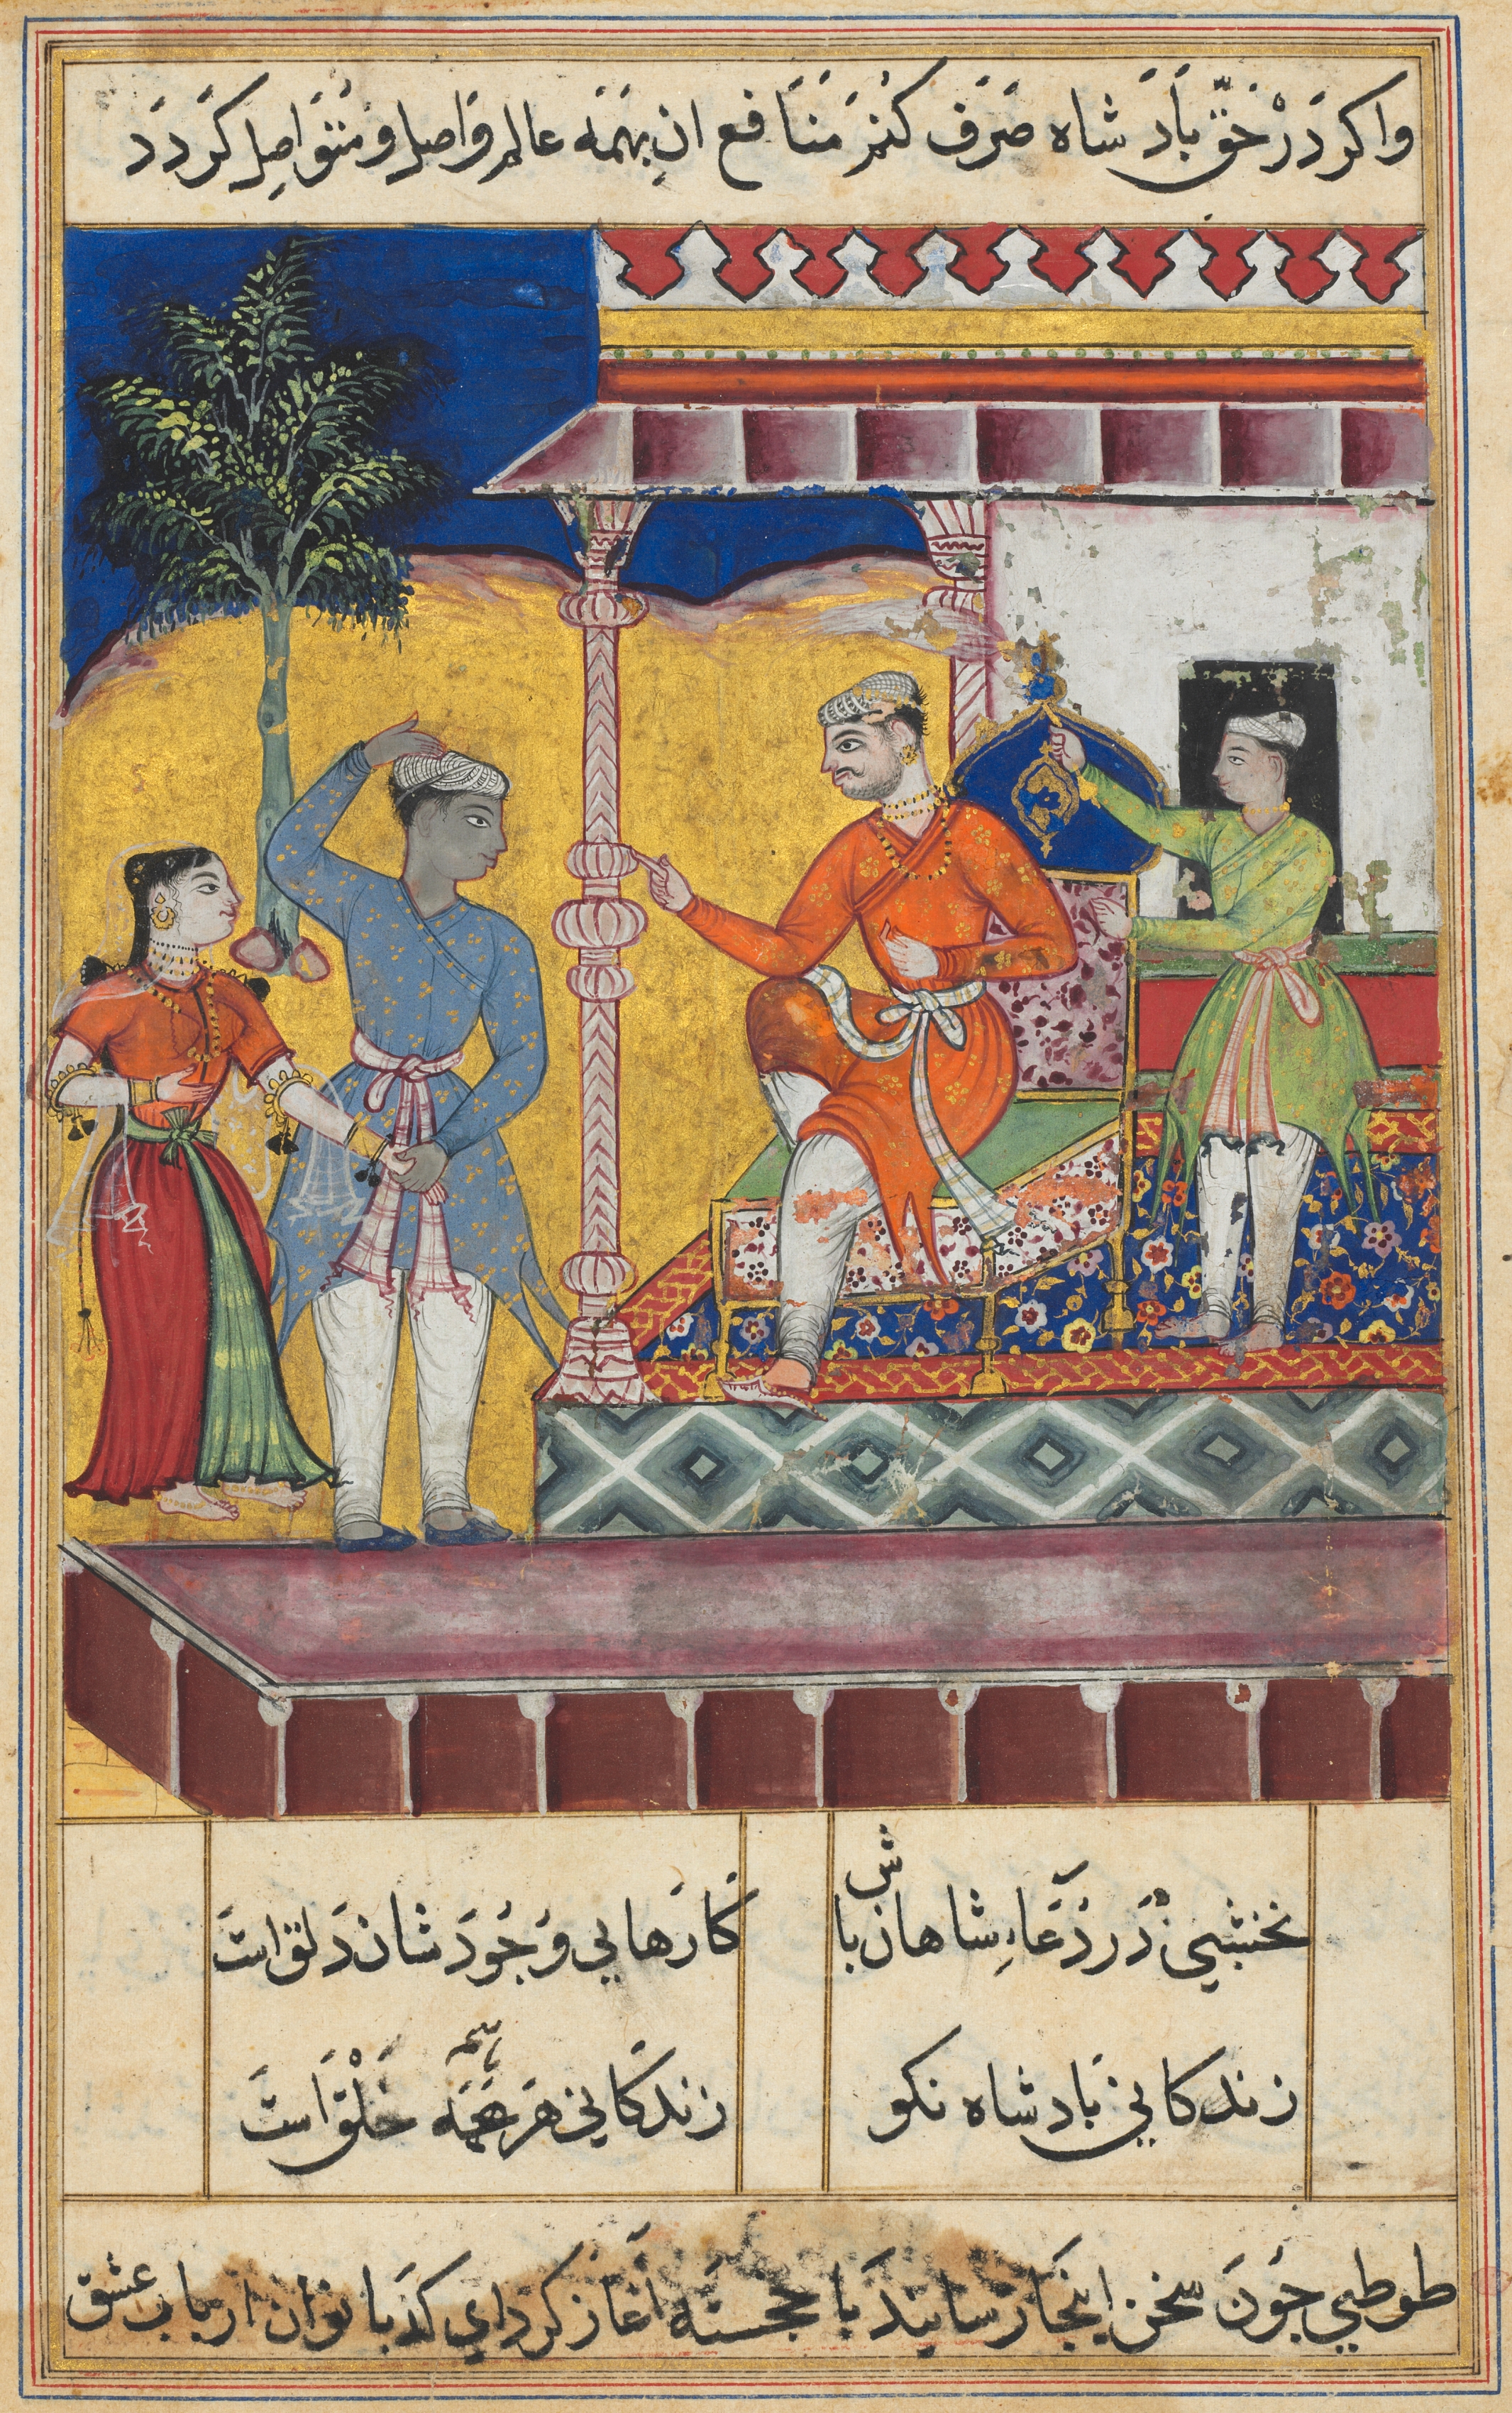 واکر دَرْ حَقّ بادَ شاه صَرَف کنمَ مَنَافع ان بهَمَه عالم وَاصل و مُتوَاصِل کَردَد
نخشبي دَر دُعَاءِ شاهان باش
کارَهَا بي وَجُودَ شان دَلق استَ
زندکاني بَادشاه نکو
زندکاني هَمَه خَلْق اَستَ
طوطي چُونَ سخن اینجَا رسَانیدَ با خجستَه آغاز کرد اي کدبانو ان ارباب عشق